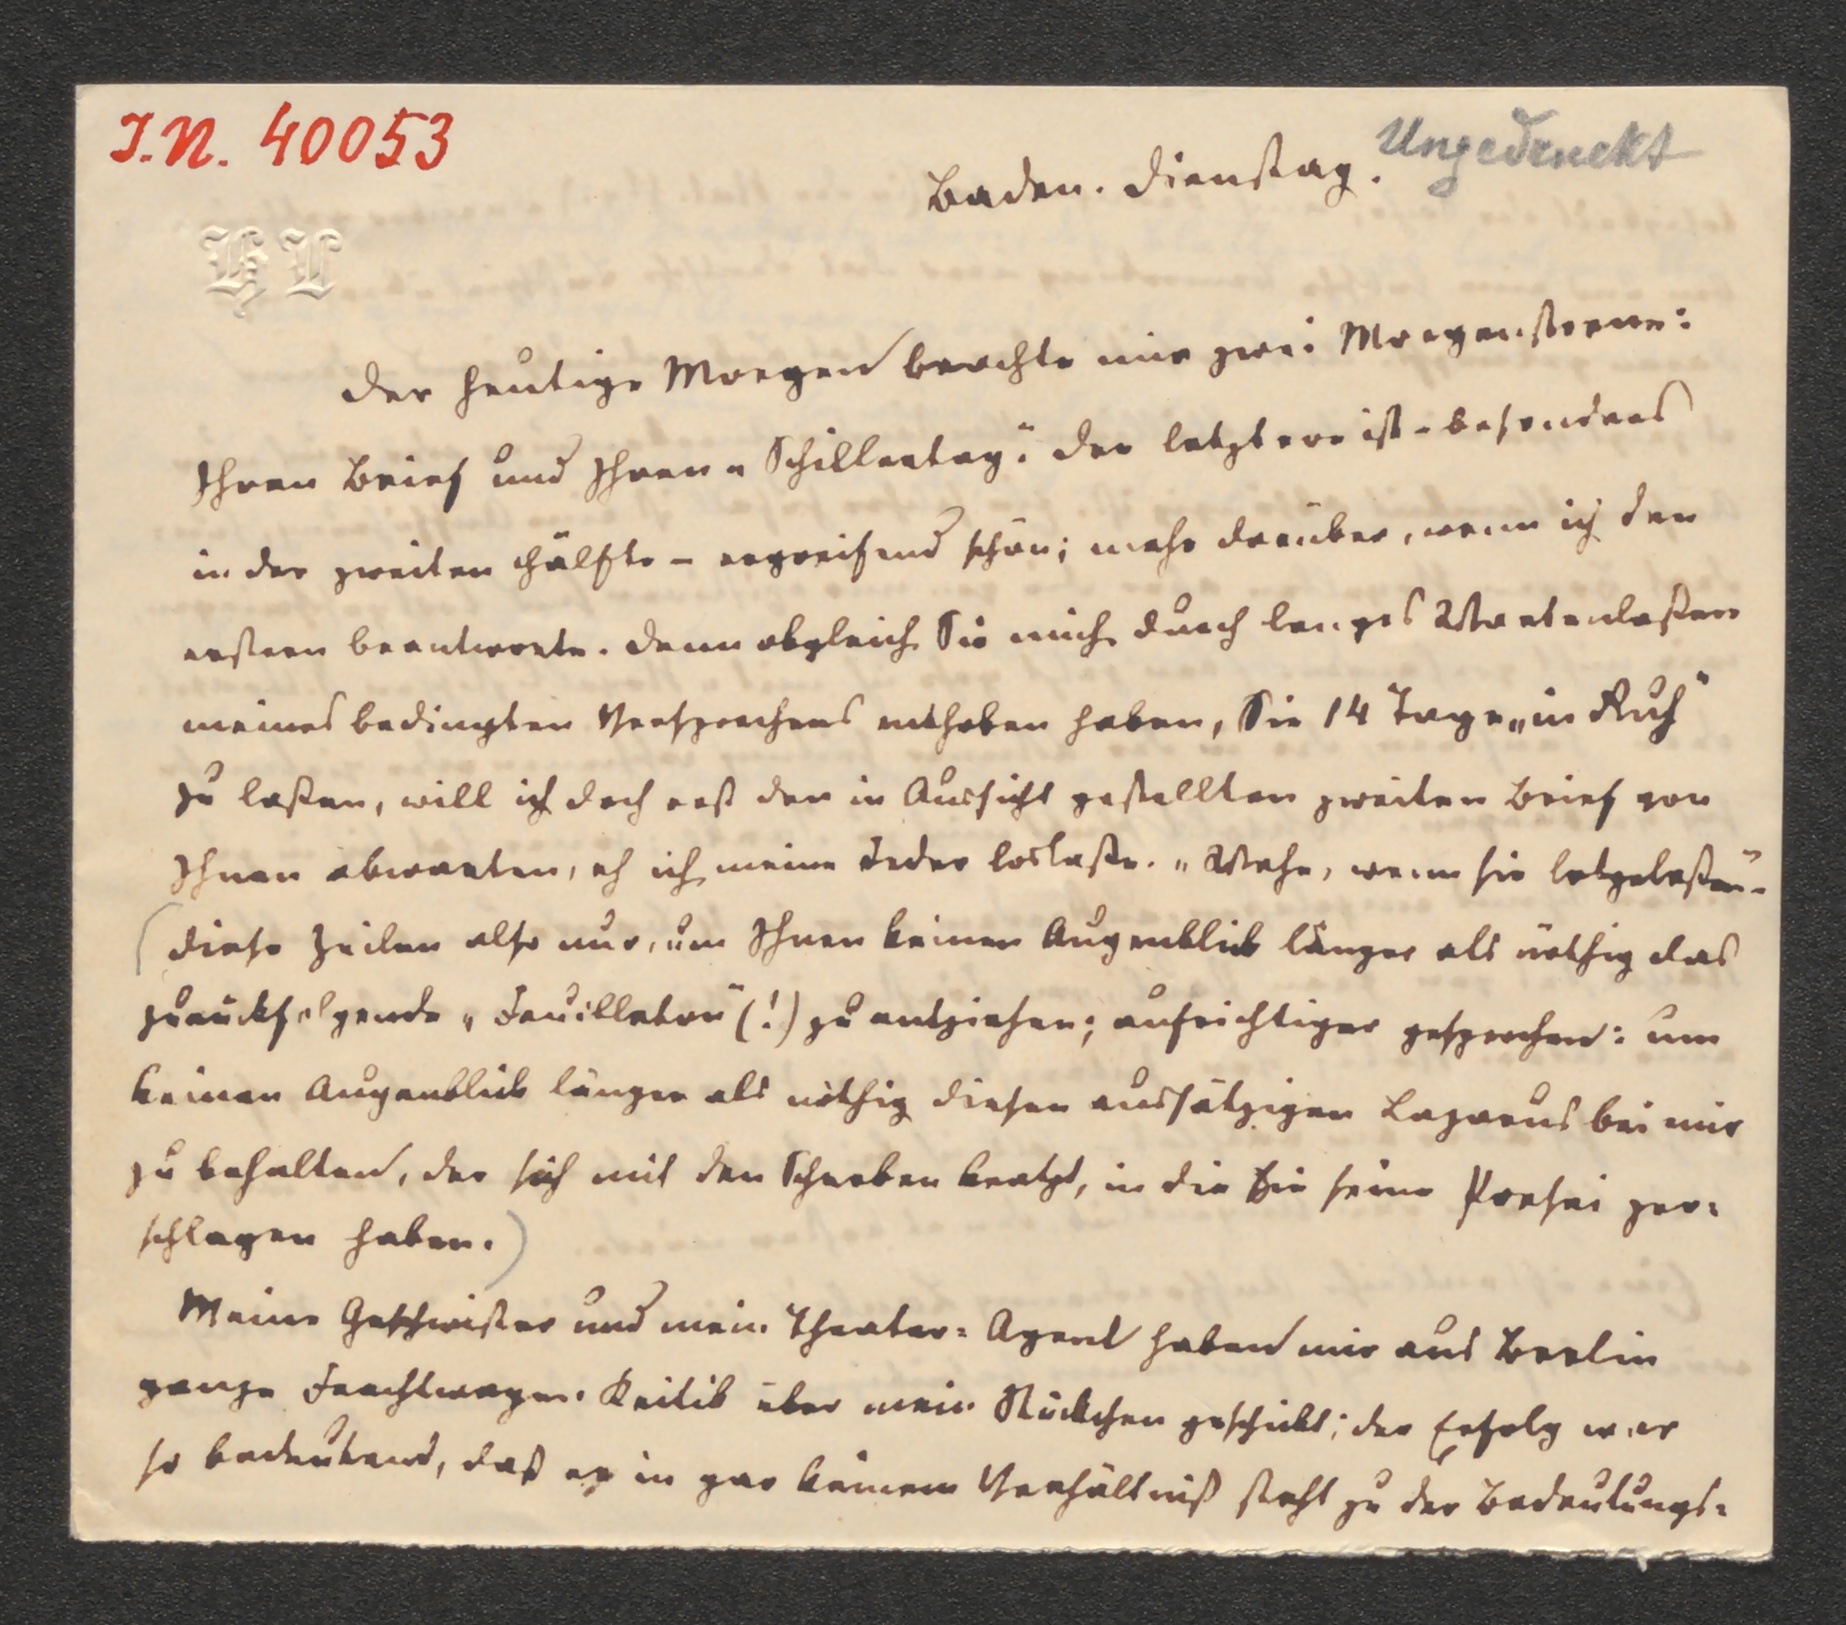 I.N. 40053
Ungedruckt
Baden. Dienstag.
HL
Der heutige Morgen brachte mir zwei Morgensterne:
Ihren Brief und Ihren „Schillertag“. Der letztere ist – besonders
in der zweiten Hälfte – ergreifend schön; mehr darüber, wenn ich den
erstern beantworte. Denn obgleich Sie mich durch langes Wartenlaßen
meines bedingten Versprechens enthoben haben, Sie 14 Tage „in Ruh“
zu laßen, will ich doch erst den in Aussicht gestellten zweiten Brief von
Ihnen abwarten, eh ich meine Feder loslaße. „Wehe, wenn sie losgelaßen“ –
(Diese Zeilen also nur, um Ihnen keinen Augenblick länger als nöthig das
zurückfolgende „Feuilleton“ (!) zu entziehen; aufrichtiger gesprochen: um
keinen Augenblick länger als nöthig diesen aussätzigen Lazarus bei mir
zu behalten, der sich mit den Scherben kratzt, in die Sie seine Poesei zer=
schlagen haben.)
Meine Geschwister und mein Theater=Agent haben mir aus Berlin
ganze Frachtwagen Kritik über mein Stückchen geschickt; der Erfolg war
so bedeutend, daß er in gar keinem Verhältniß steht zu der Bedeutungs=